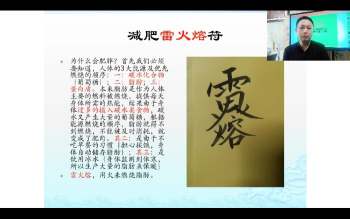 减肥雷火熔符
为什么会肥胖？首先我们必须
要知道，人体的3大能源及优先
燃烧的顺序：一：碳水化合物
（葡萄糖）；二：脂肪；三：
蛋白质。本来脂肪是作为人体
主要的燃料被燃烧，提供每天
身体所需的热能，结果由于身
体过多的摄入碳水化合物，碳
水又产生大量的葡萄糖，根据
能源燃烧的顺序，脂肪就得不
到燃烧，不能及时消耗，就
变成了肥肉。其二：是由于不
吃早餐的习惯（担心挨饿，身
体自动储存脂肪）；其三：是
饮用冰水（身体监测到体寒，
所以生产大量的脂肪去保暖）
雷火熔，用火来燃烧脂肪。
熔